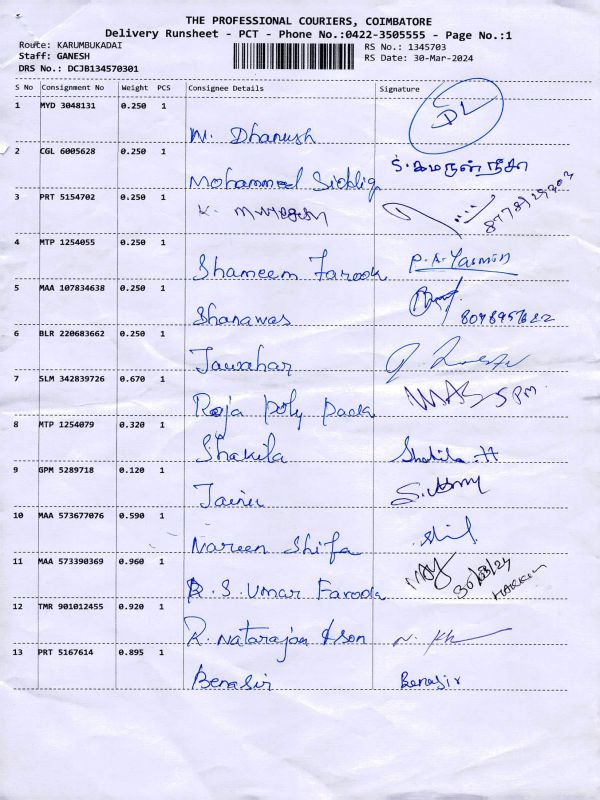 THE PROFESSIONAL COURIERS, COIMBATORE
Delivery Runsheet - PCT - Phone No.:0422-3505555 - Page No.:1
Route: KARUMBUKADAI
RS No.: 1345703
Staff: GANESH
RS Date: 30-Mar-2024
DRS No.: DCJB134570301
S No Consignment No Weight PCS Consignee Details Signature
1 MYD 3048131 0.250 1
M. Dhanush
2 CGL 6005628 0.250 1
Mohammed Siddiq
3 PRT 5154702 0.250 1
K. Murugesh
4 MTP 1254055 0.250 1
Shameem Farook P.A. Yasmin
5 MAA 107834638 0.250 1
Shanawas
6 BLR 220683662 0.250 1
Jawahar
7 SLM 342839726 0.670 1
Roja Poly Pack
8 MTP 1254079 0.320 1
Shakila Shakila.H
9 GPM 5289718 0.120 1
Jainu
10 MAA 573677076 0.590 1
Nareen Shifa
11 MAA 573390369 0.960 1
30/03/24
R.S. Umar Farook
12 TMR 901012455 0.920 1
R. Natarajan & son
13 PRT 5167614 0.895 1
Benasir Benasir